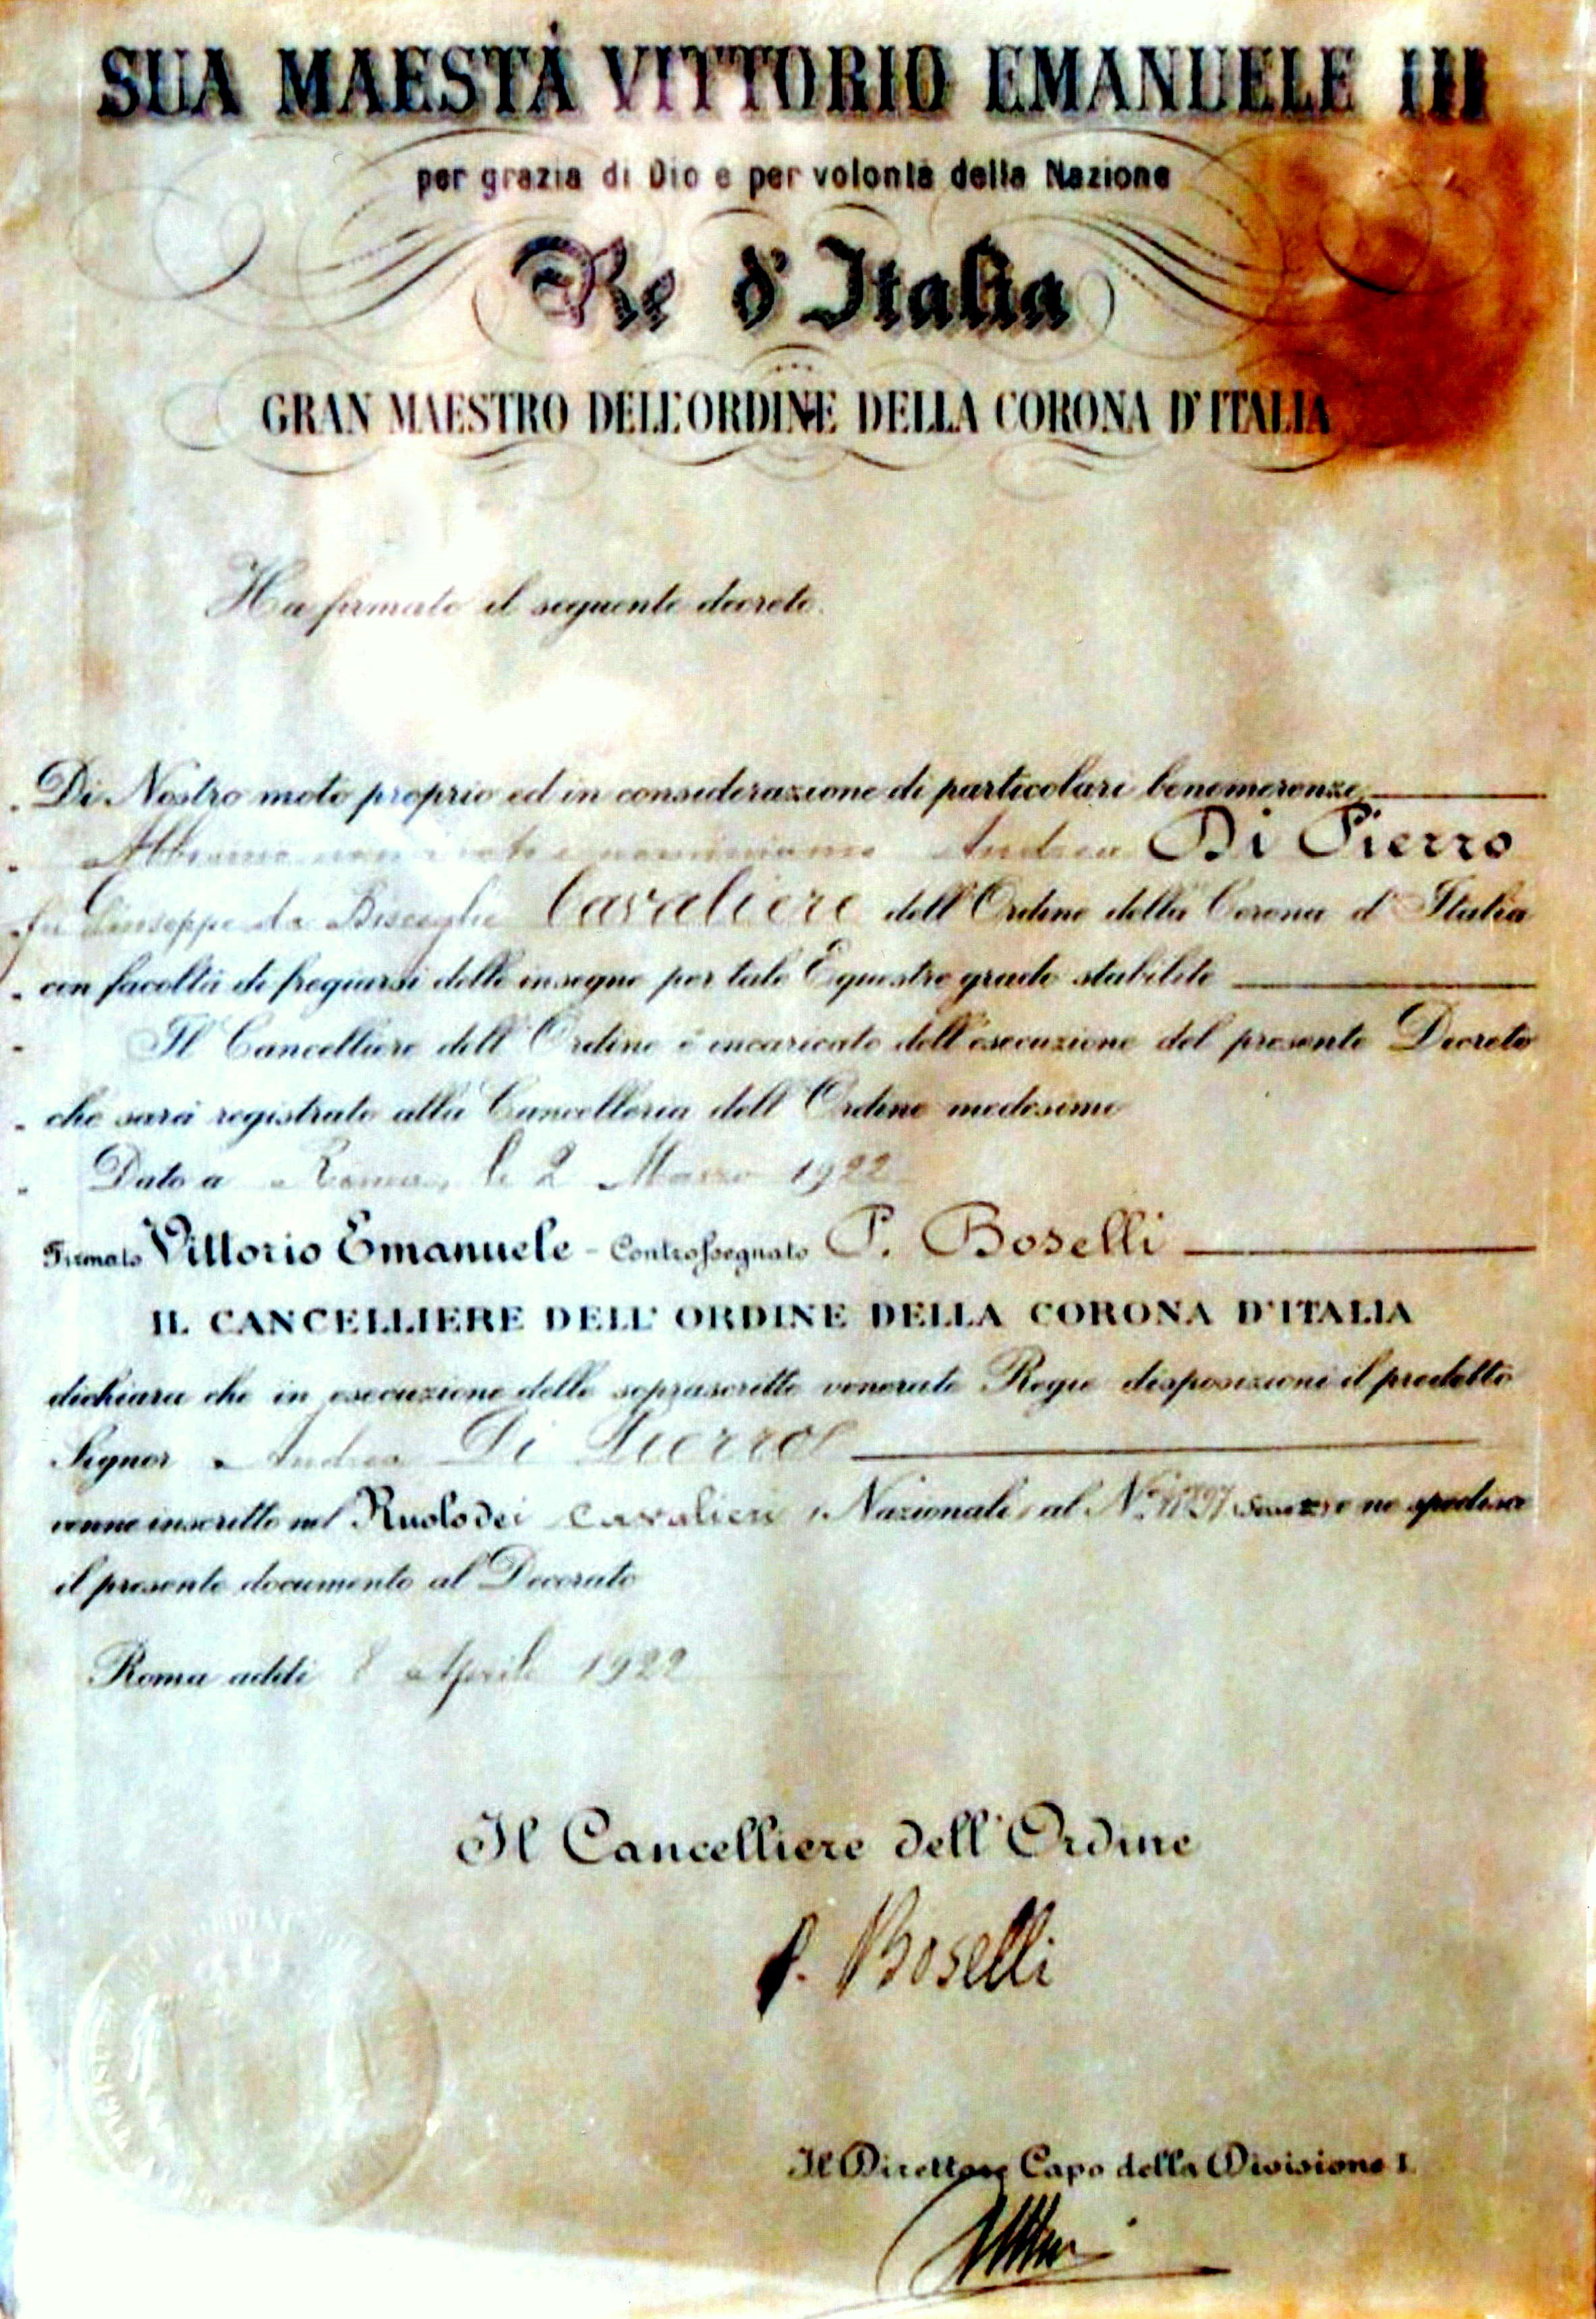 SUA MAESTÀ VITTORIO EMANUELE III
per grazia di Dio e per volontà della Nazione
Re d'Italia
GRAN MAESTRO DELL'ORDINE DELLA CORONA D'ITALIA
Ha firmato il seguente decreto.
Di Nostro moto proprio ed in considerazione di particolari benemerenze
Abbiamo nominato e nominiamo Andrea Di Pierro
fu Giuseppe da Bisceglie Cavaliere dell'Ordine della Corona d'Italia
con facoltà di fregiarsi delle insegne per tale Equestre grado stabilite
Il Cancelliere dell'Ordine è incaricato dell'esecuzione del presente Decreto
che sarà registrato alla Cancelleria dell'Ordine medesimo
Dato a Roma, li 2 Marzo 1922
Firmato Vittorio Emanuele - Controssegnato P. Boselli
IL CANCELLIERE DELL'ORDINE DELLA CORONA D'ITALIA
dichiara che in esecuzione delle soprascritte venerate Regie disposizioni il predetto
Signor Andrea Di Pierro
venne inscritto nel Ruolo dei Cavalieri Nazionali al N. e ne spedisce
il presente documento al Decorato
Roma addì 8 Aprile 1922
Il Cancelliere dell'Ordine
P. Boselli
Il Direttore Capo della Divisione I.